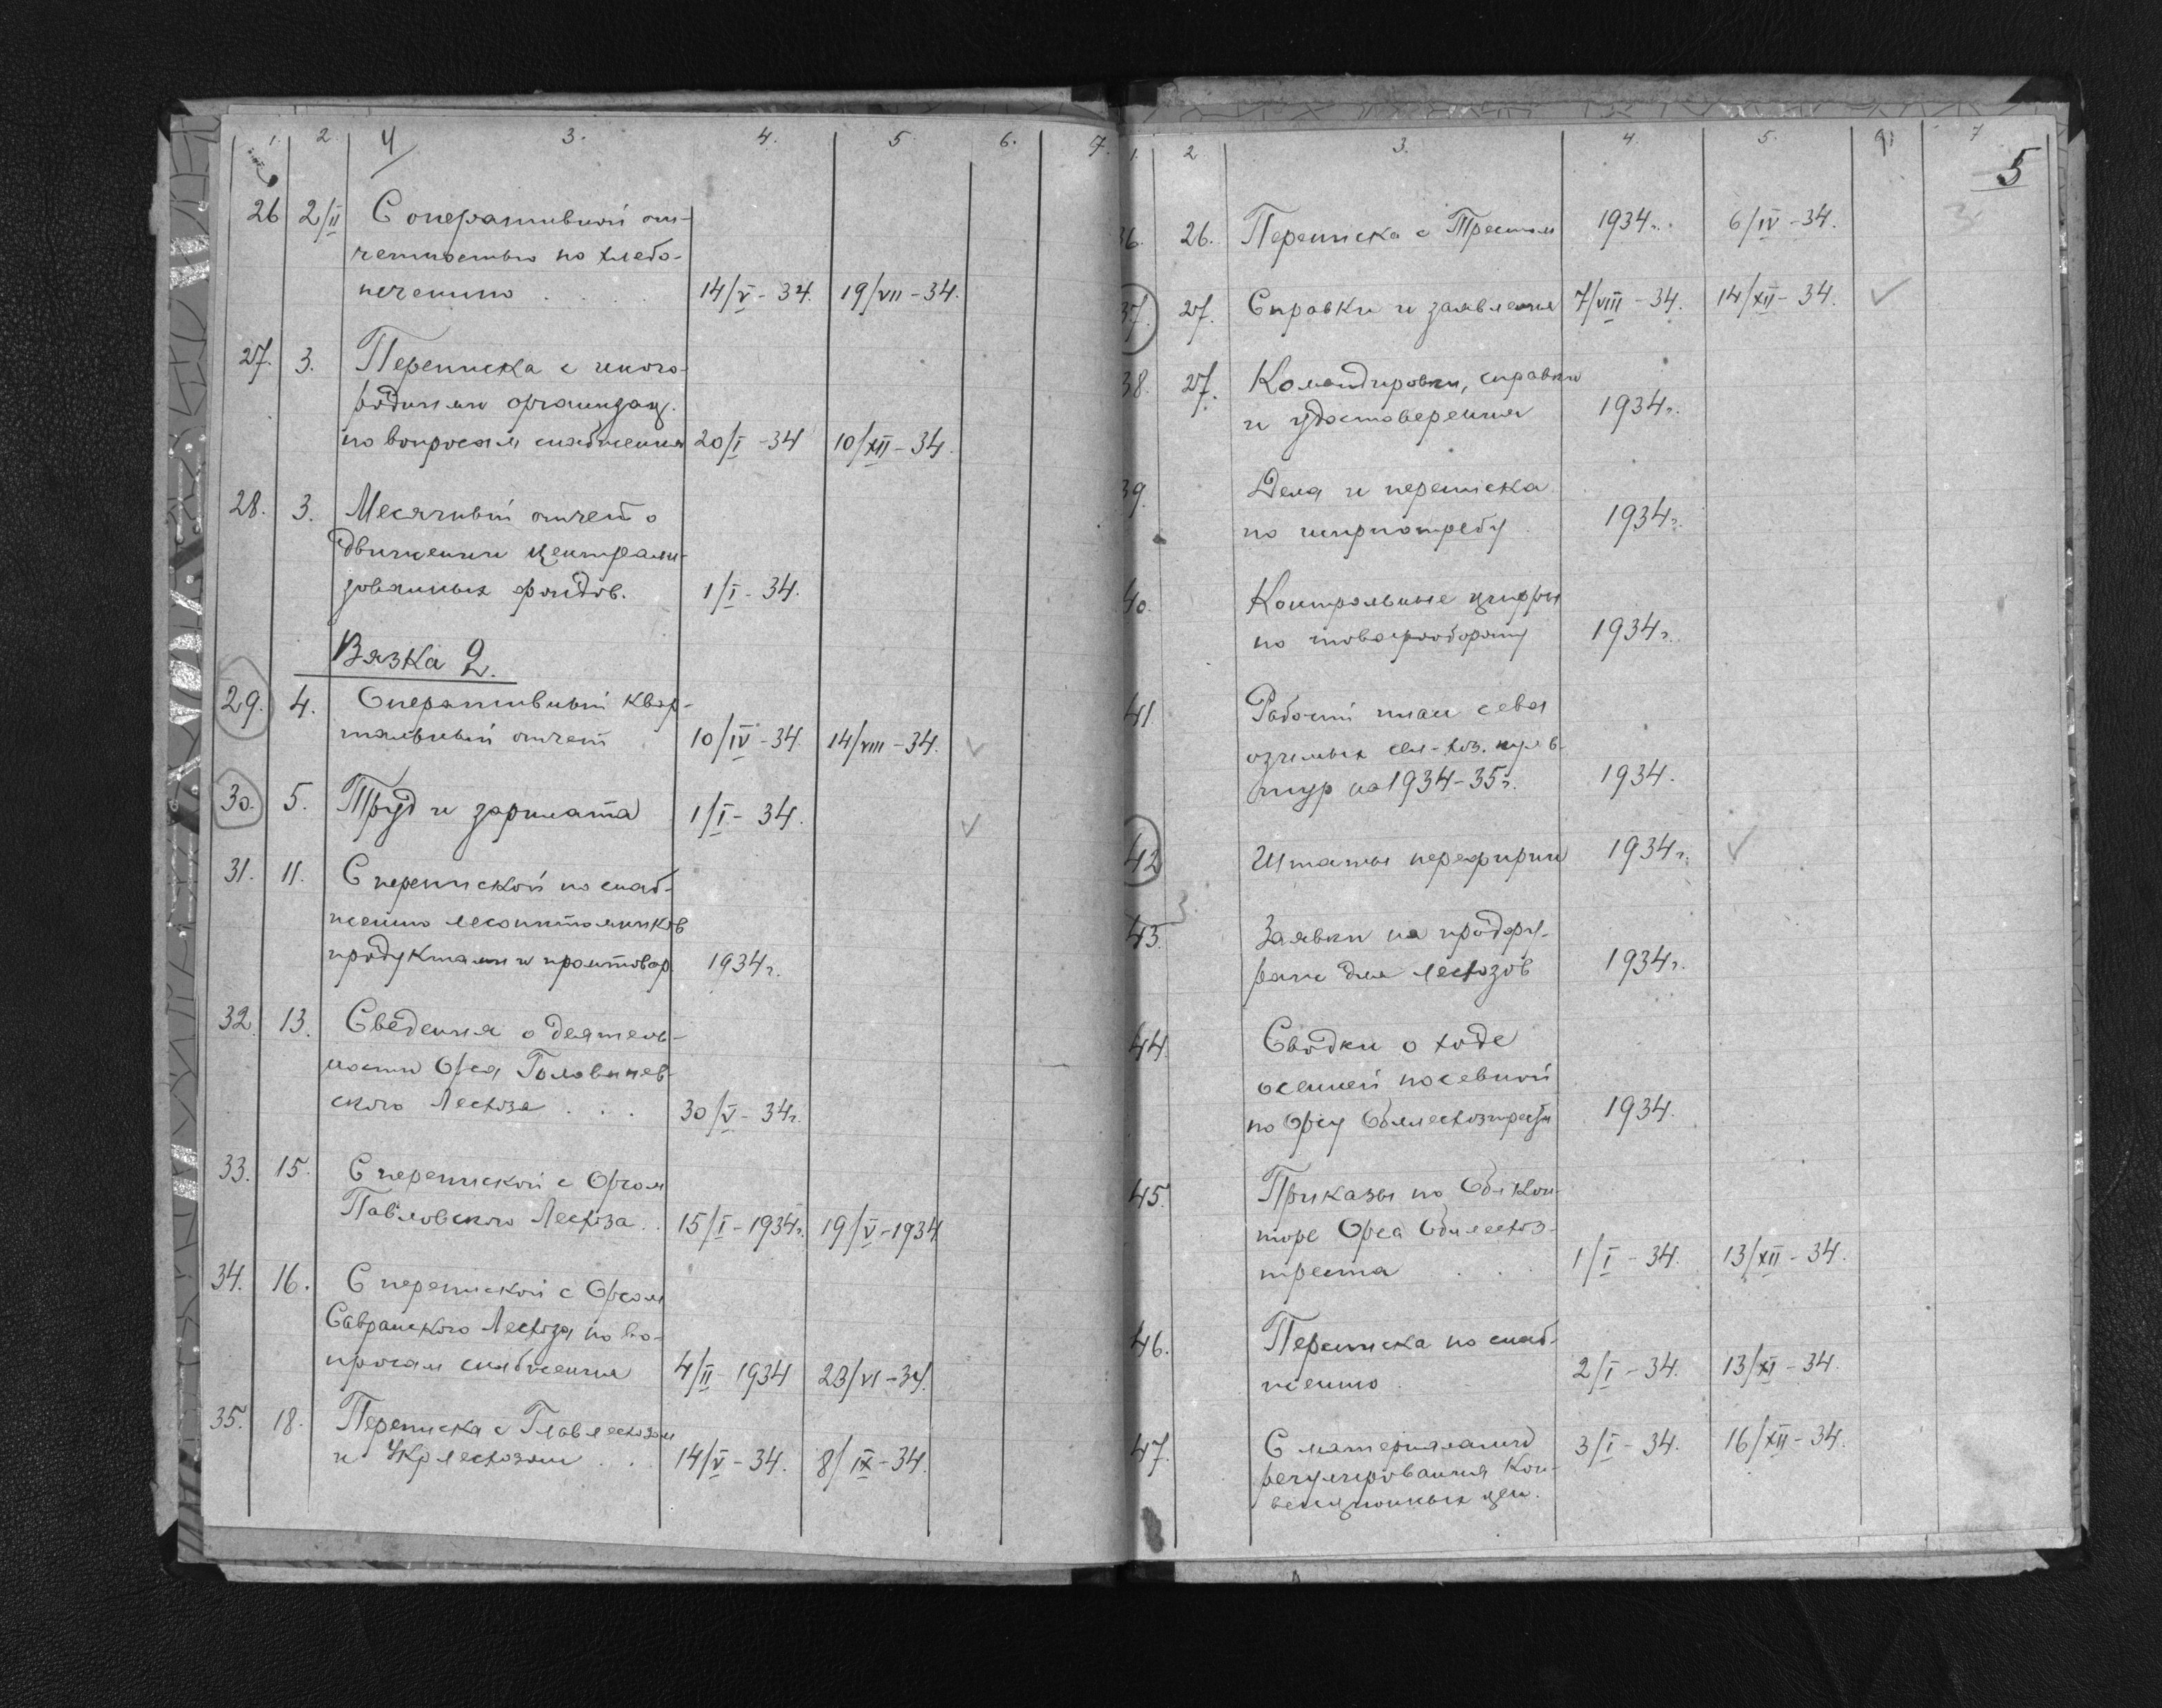 1. 2. 4 3. 4. 5 6. 7.
26 2/II С оперативной от-
четностью по хлебо-
печению . . . 14/V - 34. 19/VII - 34.
27. 3. Переписка с иного-
родними организац.
по вопросам снабжения 20/I - 34 10/XII - 34.
28. 3. Месячный отчет о
движении централи-
зованных фондов. 1/I - 34.
Вязка 2.
29. 4. Оперативный квар-
тальный отчет 10/IV - 34. 14/VIII - 34. ✓
30. 5. Труд и зарплата 1/I - 34. ✓
31. 11. С перепиской по снаб-
жению лесопитомников
продуктами и промтовар 1934 г.
32. 13. Сведения о деятель-
ности Орса Головинев-
ского Лесхоза . . . 30/V - 34 г.
33. 15. С перепиской с Орсом
Павловского Лесхоза . . 15/I - 1934 г. 19/V - 1934
34. 16. С перепиской с Орсом
Савранского Лесхоза по во-
просам снабжения 4/II - 1934 23/VI - 34.
35. 18. Переписка с Главлесхозом
и Укрлесхозом . . 14/V - 34. 8/IX - 34.
1. 2 3. 4. 5. 6. 7
5
3.
36. 26. Переписка с Трестом 1934 г. 6/IV - 34.
37. 27. Справки и заявления 7/VIII - 34. 14/XII - 34. ✓
38. 27. Командировки, справки
и удостоверения 1934 г.
39. Дела и переписка
по ширпотребу 1934 г.
40. Контрольные цифры
по товарообороту 1934 г.
41. Рабочий план сева
озимых сел-хоз. куль-
тур на 1934-35 г. 1934.
42 Штаты периферии 1934 г. ✓
3.
43. Заявки на продфу-
раж для лесхозов 1934 г.
44. Сводки о ходе
осенней посевной
по Орсу Облесхозтреста 1934.
45. Приказы по Обл Кон-
торе Орса Облесхоз-
треста . . . 1/I - 34. 13/XII - 34.
46. Переписка по снаб-
жению . 2/I - 34. 13/XI - 34.
47. С материалами 3/I - 34. 16/XII - 34.
регулирования кон-
венционных цен.